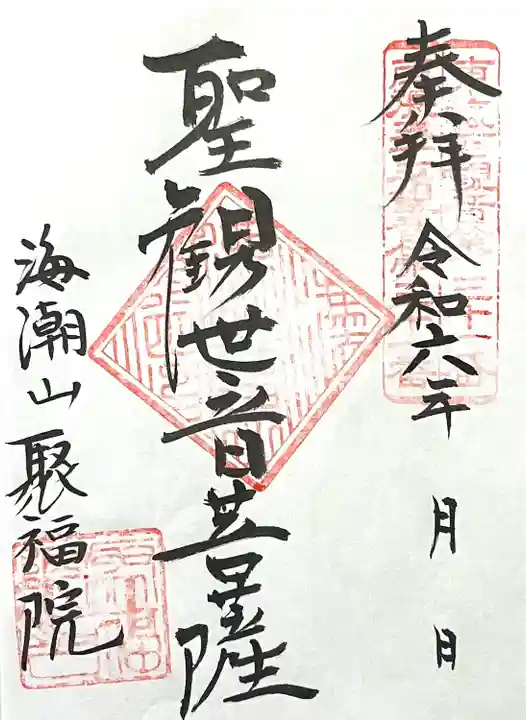 奉拝
令和六年 月 日
聖観世音菩薩
海潮山聚福院